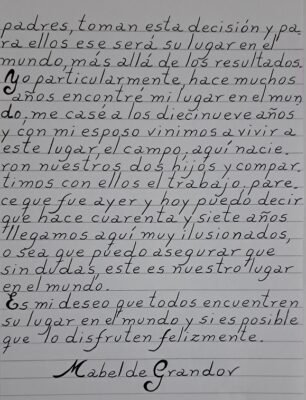 padres, toman esta decisión y pa-
ra ellos ese será su lugar en el
mundo, más allá de los resultados.
Yo particularmente, hace muchos
años encontré mi lugar en el mun
do, me casé a los diecinueve años
y con mi esposo vinimos a vivir a
este lugar, el campo, aquí nacie-
ron nuestros dos hijos y compar-
timos con ellos el trabajo, pare-
ce que fue ayer y hoy puedo decir
que hace cuarenta y siete años
llegamos aquí muy ilusionados,
o sea que puedo asegurar que
sin dudas, este es nuestro lugar
en el mundo.
Es mi deseo que todos encuentren
su lugar en el mundo y si es posible
que lo disfruten felizmente.
Mabel de Grandov